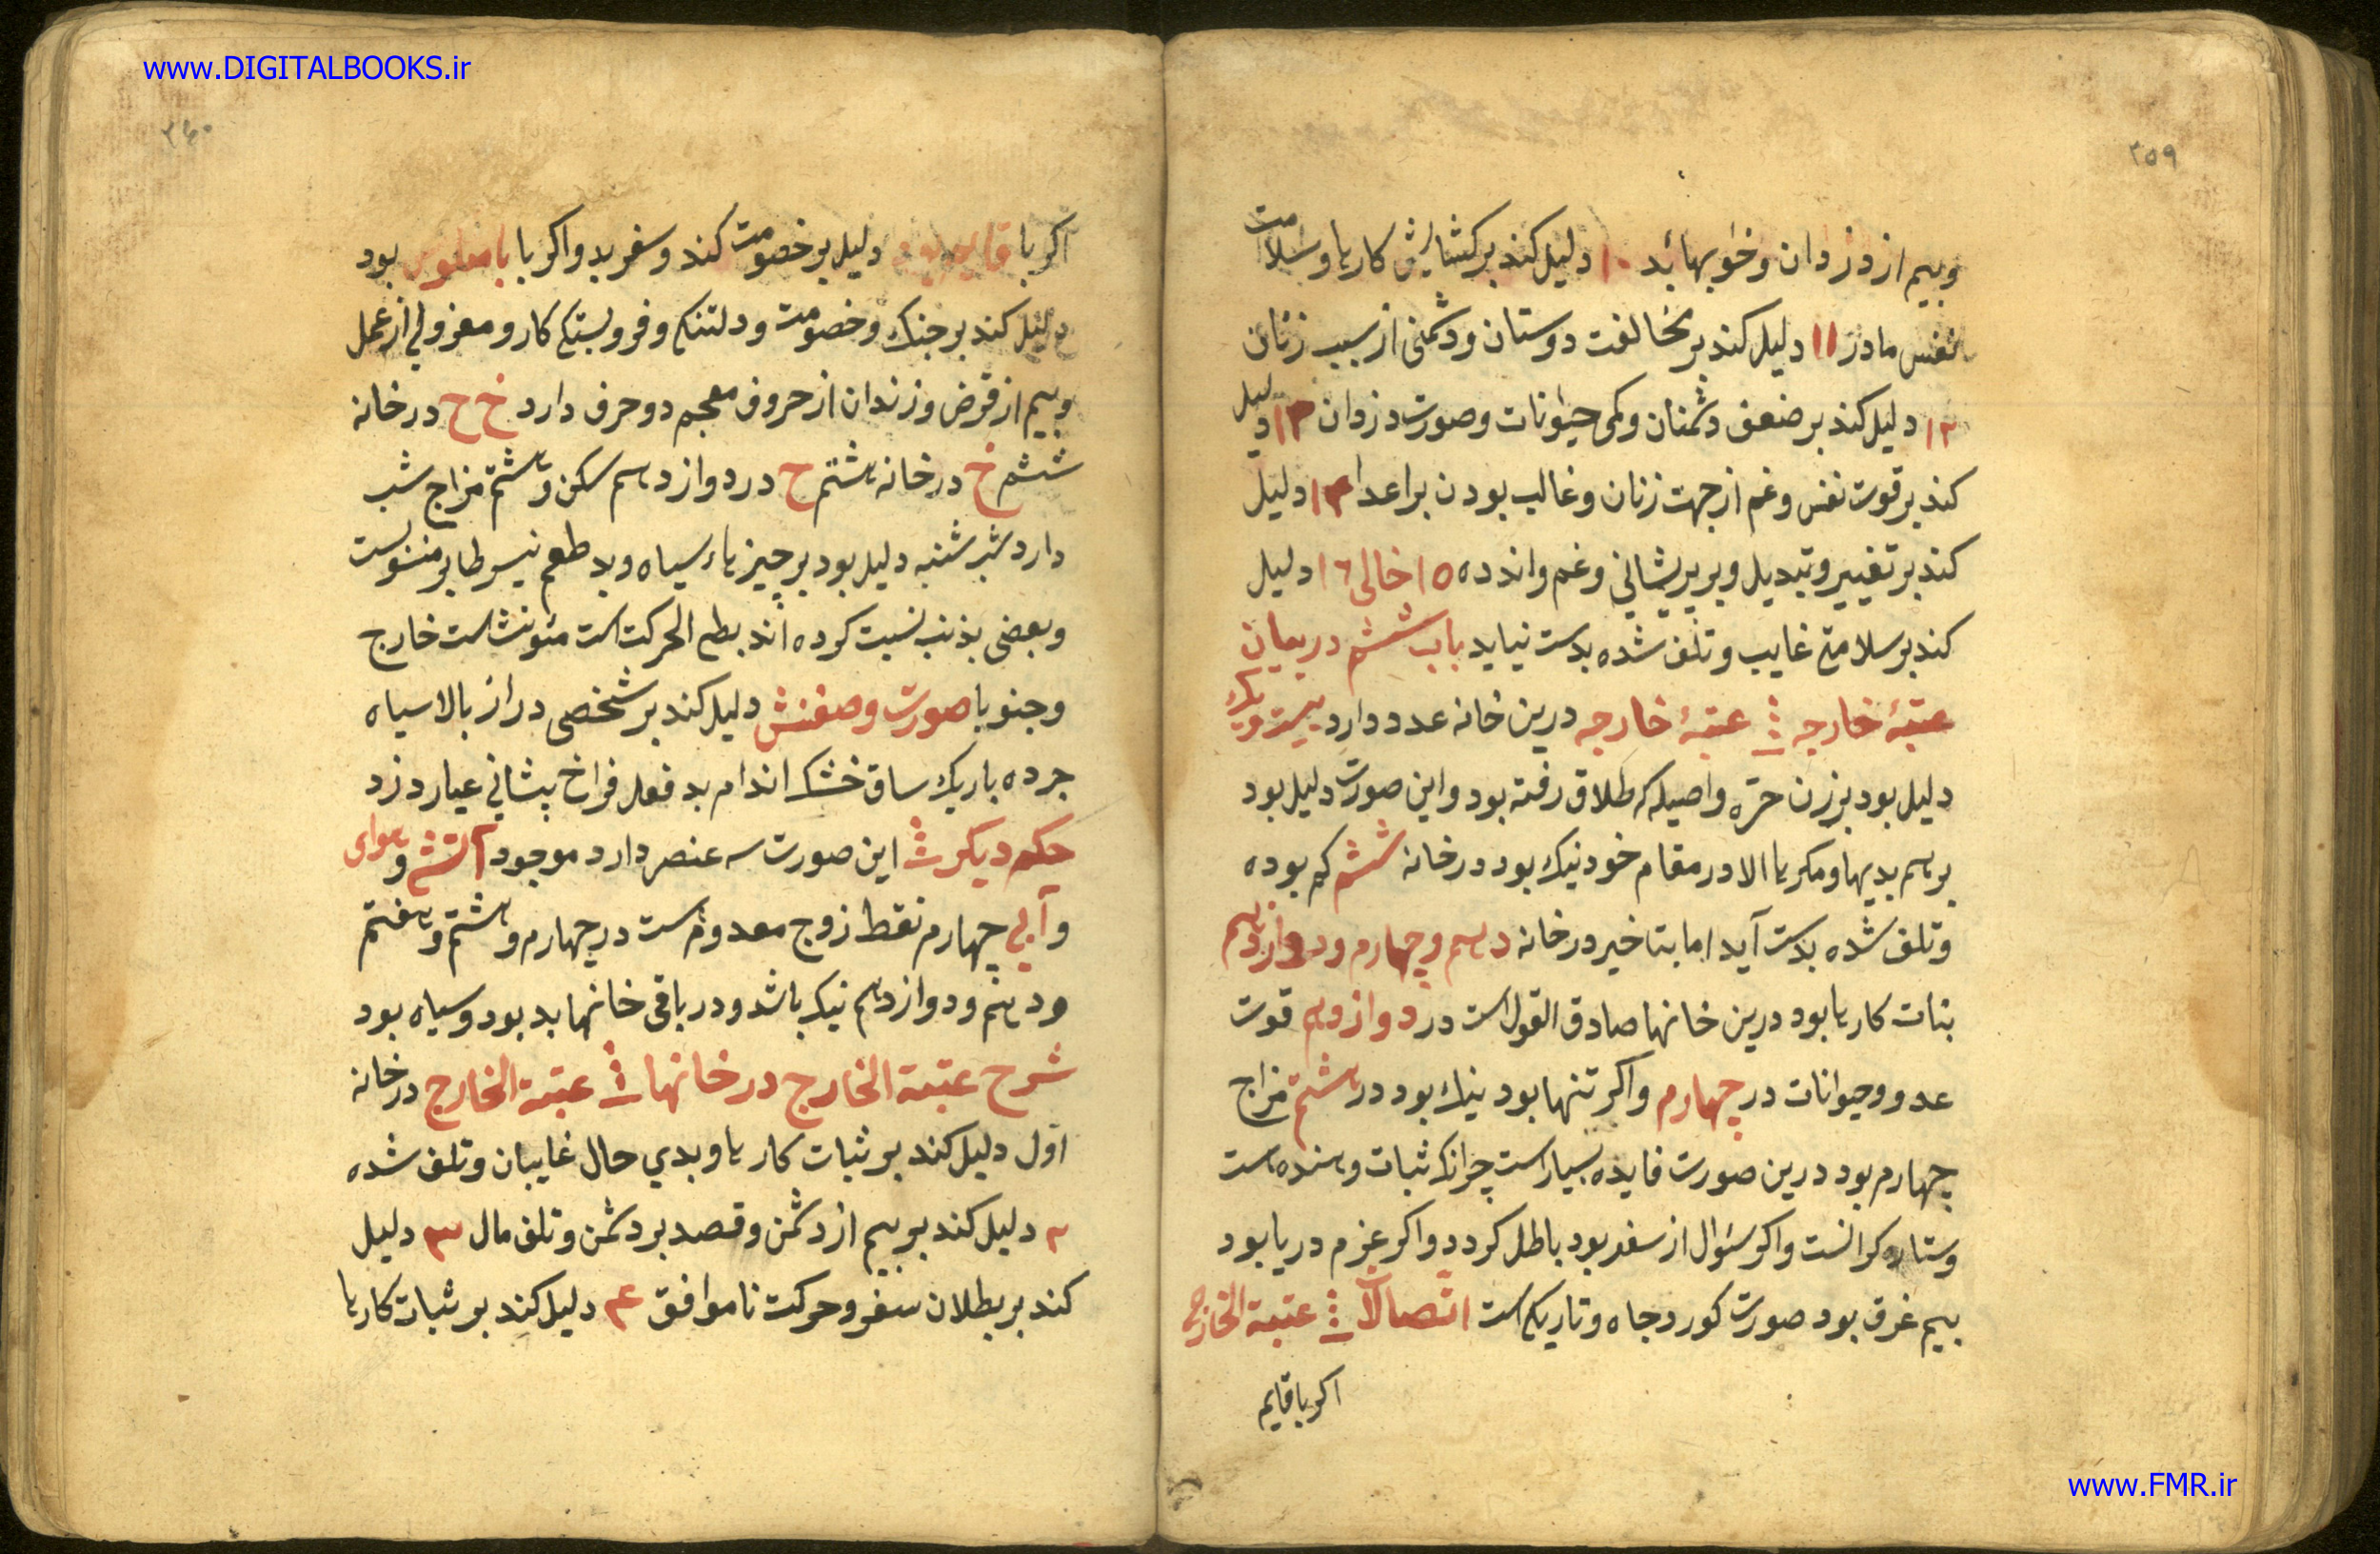 www.DIGITALBOOKS.ir
۳۵۹
وبیم از دزدان وخوابهاٸ بد ۱۰ دلیل کند بر کشایش کارها وسلامت
نفس مادر ۱۱ دلیل کند بر مخالفت دوستان ودشمنی از سبب زنان
۱۲ دلیل کند بر ضعف دشمنان وکمی حیوانات وصورت دزدان ۱۳ دلیل
کند بر قوت نفس وغم از جهت زنان وغالب بودن بر اعدا ۱۴ دلیل
کند بر تغییر وتبدیل وبر پریشانی وغم واندده ۱۵ خالی ۱۶ دلیل
کند بر سلامتی غایب وتلف شده بدست نیاید باب ششم در بیان
عتبهٔ خارجه عتبهٔ خارجه درین خانه عدد دارد بیست ویک
دلیل بود بر زن حرّه واصیله که طلاق رفته بود واین صورت دلیل بود
بر همه بدیها ومکرها الا در مقام خود نیک بود در خانه ششم که بوده
وتلف شده بدست آید اما بتاخیر در خانه دهم وچهارم ودوازدهم
بنات کارها بود درین خانها صادق القول است در دوازدهم قوت
عدو وحیوانات در چهارم واکر تنها بود نیک بود در هشتم مزاج
چهارم بود درین صورت فایده بسیار است چرانکه ثبات وهنده است
وستاره کرانست واکر سئوال از سفر بود باطل کردد واکر عزم دریا بود
بیم غرق بود صورت کور وجاه وتاریکی است اتّصالات عتبة الخارج
اکر با قایم
۳۶۰
اکر با دلیل بر خصومت کند وسفر بد واکر با بود
دلیل کند بر جنک وخصومت ودلتنکی وفروبستکی کار ومعزولی از عمل
وبیم از قرض وزندان از حروف معجم دو حرف دارد خ ح در خانه
ششم خ در خانه هشتم ح در دوازدهم سکن وهشتم مزاج شب
دارد شب شنبه دلیل بود بر چیزهاء سیاه وبد طعم
وبعضی بذنب نسبت کرده اند بطی الحرکت است مئونث است خارج
وجنوبا صورت وصفتش دلیل کند بر شخصی دراز بالا سیاه
جرده باریک ساق خشک اندام بد فعل فراخ پیشانی عیار دزد
حکم دیکر این صورت سه عنصر دارد موجود آتش وهوای
وآبی چهارم نقط زوج معدومست در چهارم وهشتم وهفتم
ودهم ودوازدهم نیک باشد ودر باقی خانها بد بود وسیاه بود
شرح عتبة الخارج در خانها عتبة الخارج در خانه
اوّل دلیل کند بر ثبات کارها وبدي حال غایبان وتلف شده
۲ دلیل کند بر بیم از دشمن وقصد بر دشمن وتلف مال ۳ دلیل
کند بر بطلان سفر وحرکت ناموافق ۴ دلیل کند بر ثبات کارها
www.FMR.ir